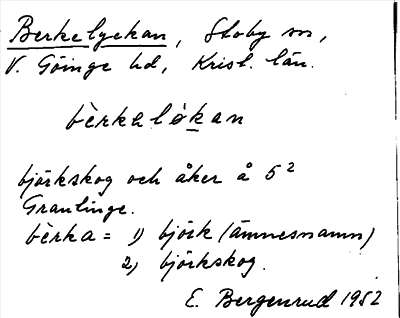 Berkelyckan, Stoby sn,
V. Göinge hd, Krist. län.
bèrkalỳkan
björkskog och åker å 5²
Grantinge.
bèrka = 1) björk (ämnesnamn)
2) björkskog.
E. Bergenrud 1952